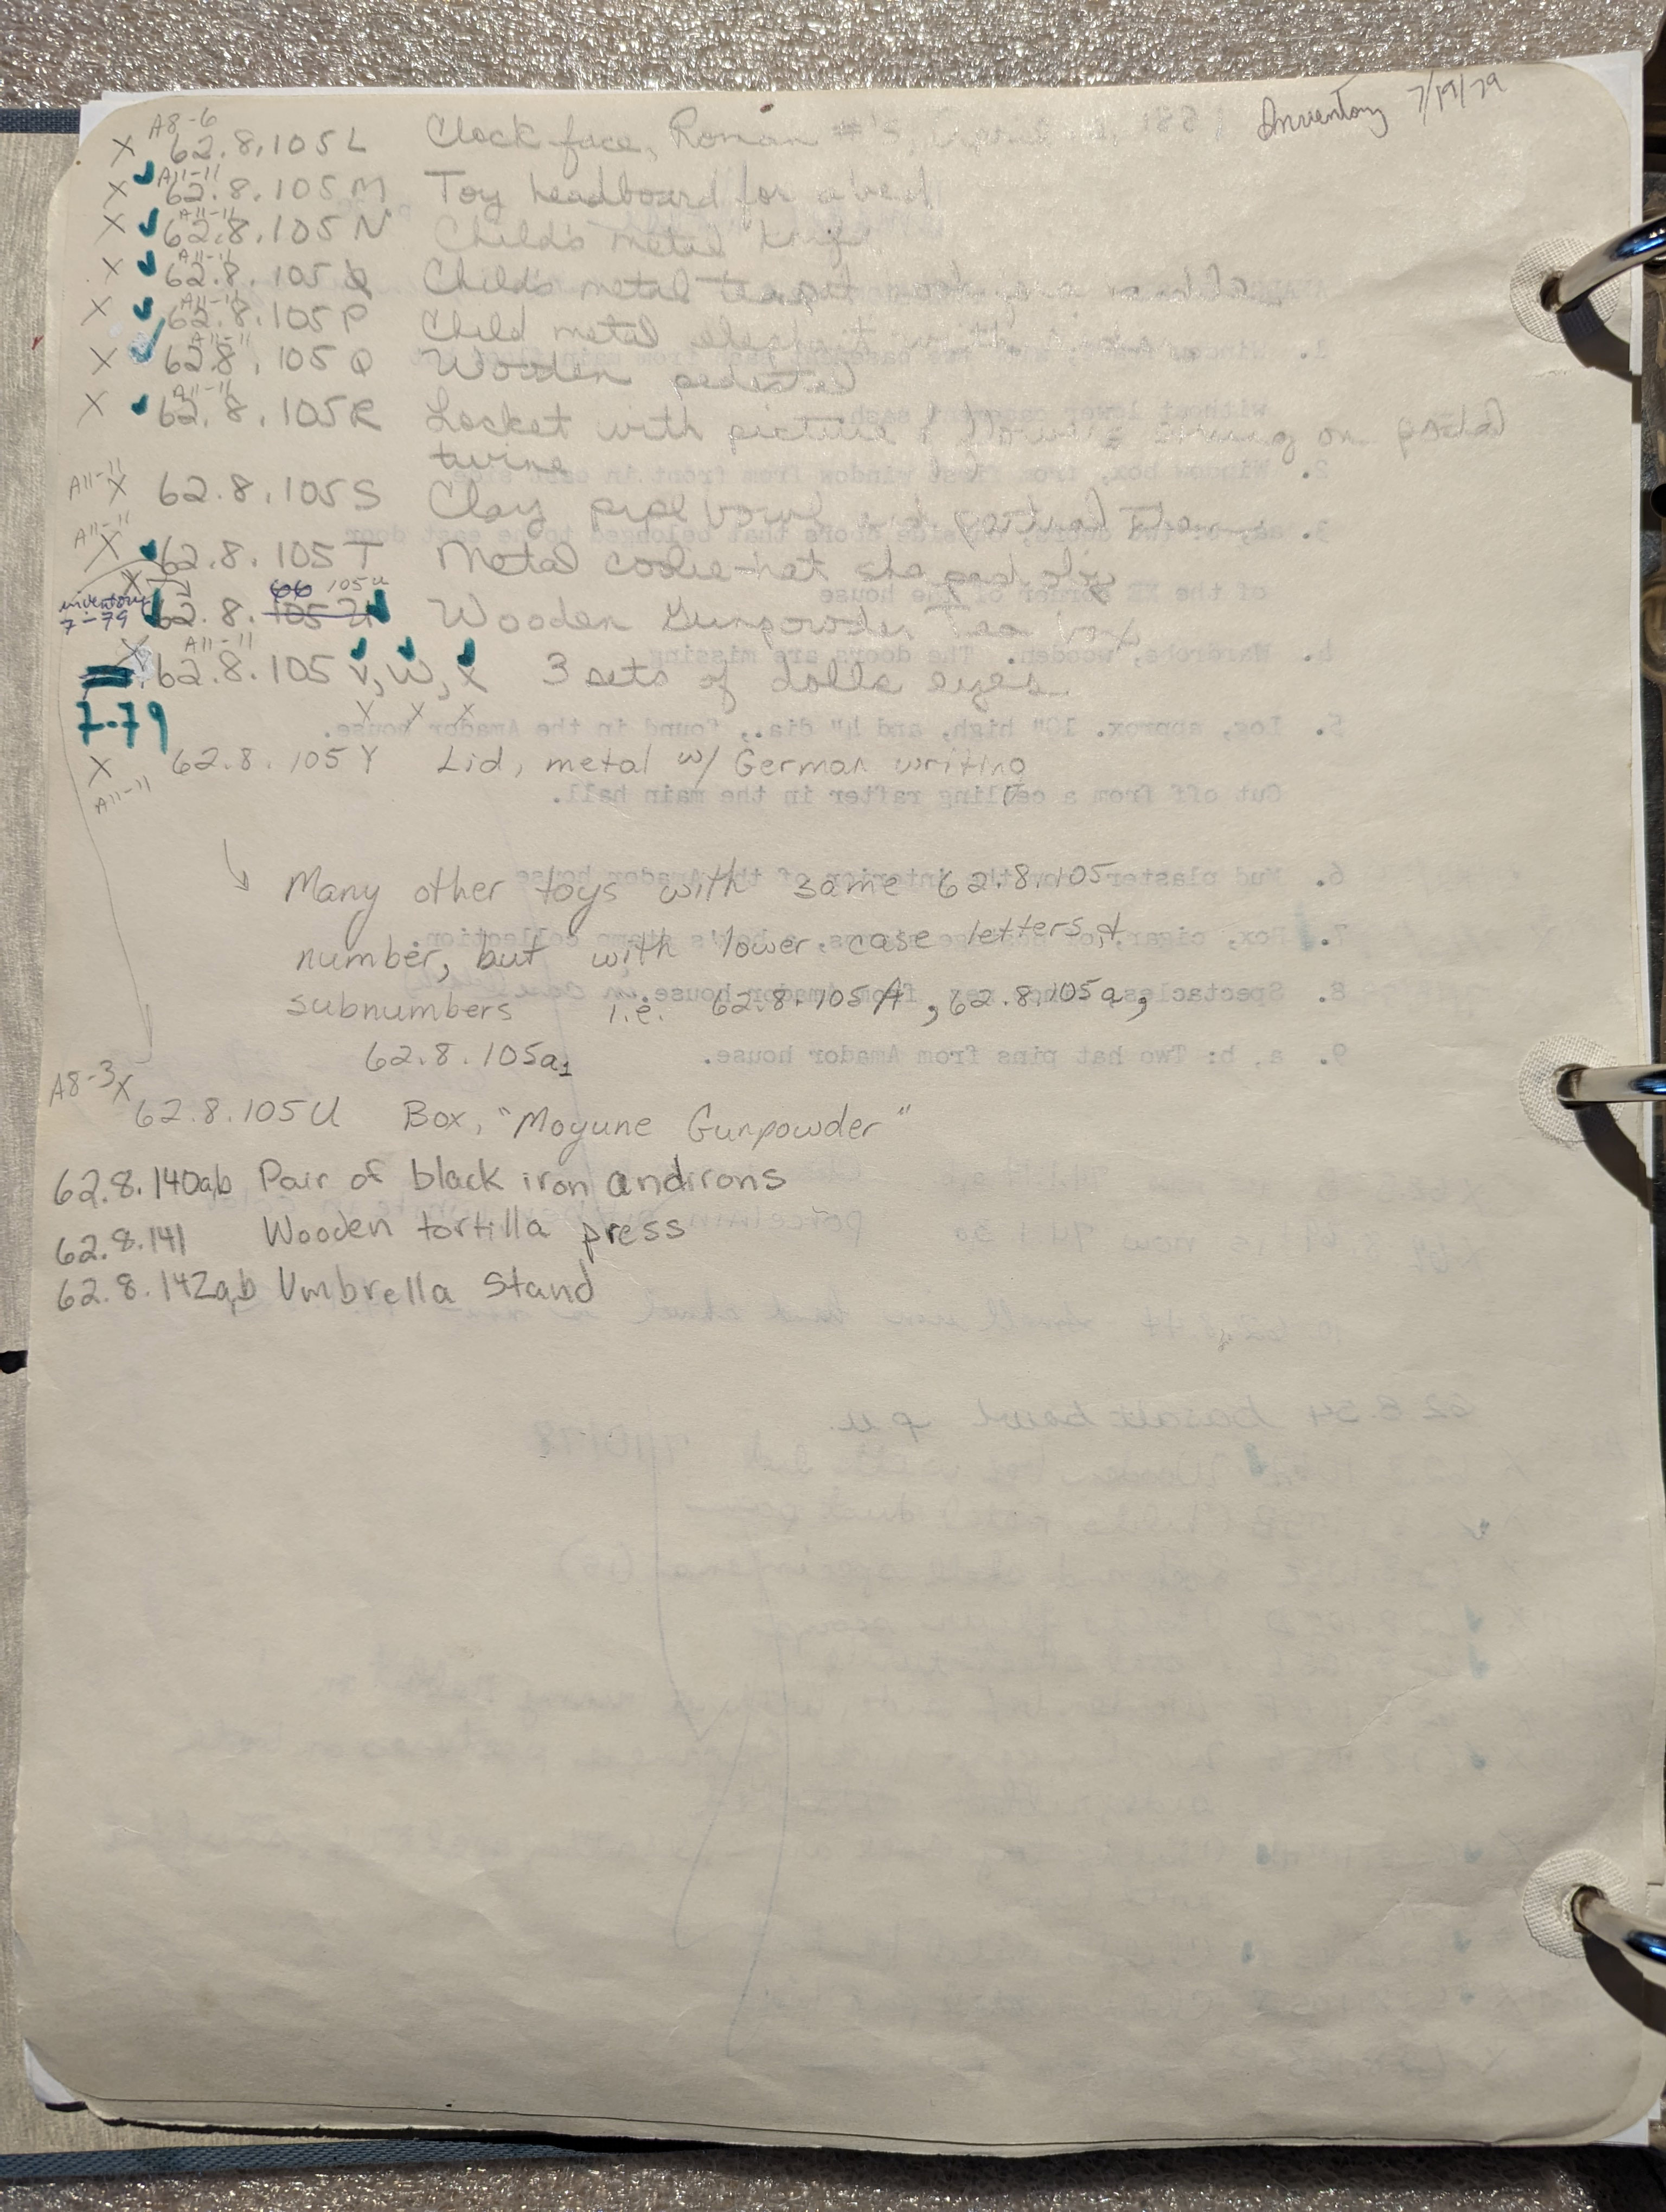 Inventory 7/19/79
A8-6
X 62.8.105L Clock face, Roman #'s,
A11-11
X ✓ 62.8.105M Toy headboard for a bed
A11-11
X ✓ 62.8.105N Child's metal
A11-11
X ✓ 62.8.105 Child's metal teapot
A11-11
X ✓ 62.8.105P Child metal elephant with
A11-11
X ✓ 62.8.105Q Wooden pedistal
A11-11
X ✓ 62.8.105R Locket with picture & flowers strung on
twine
A11-11
X 62.8.105S Clay pipe bowl and partial
A11-11
X ✓ 62.8.105T Metal coolie-hat shaped
66 105u
inventory
7-79 X ✓ 62.8. 105U ✓ Wooden Gunpowder Tea box
A11-11
X 62.8.105 V, W, X 3 sets of dolls eyes
X X X
7-79
X 62.8.105Y Lid, metal w/ German writing
A11-11
Many other toys with same 62.8.105
number, but with lower case letters &
subnumbers i.e. 62.8.105A, 62.8.105a,
62.8.105a1
A8-3 X
62.8.105U Box, "Moyune Gunpowder"
62.8.140a,b Pair of black iron andirons
62.8.141 Wooden tortilla press
62.8.142a,b Umbrella Stand